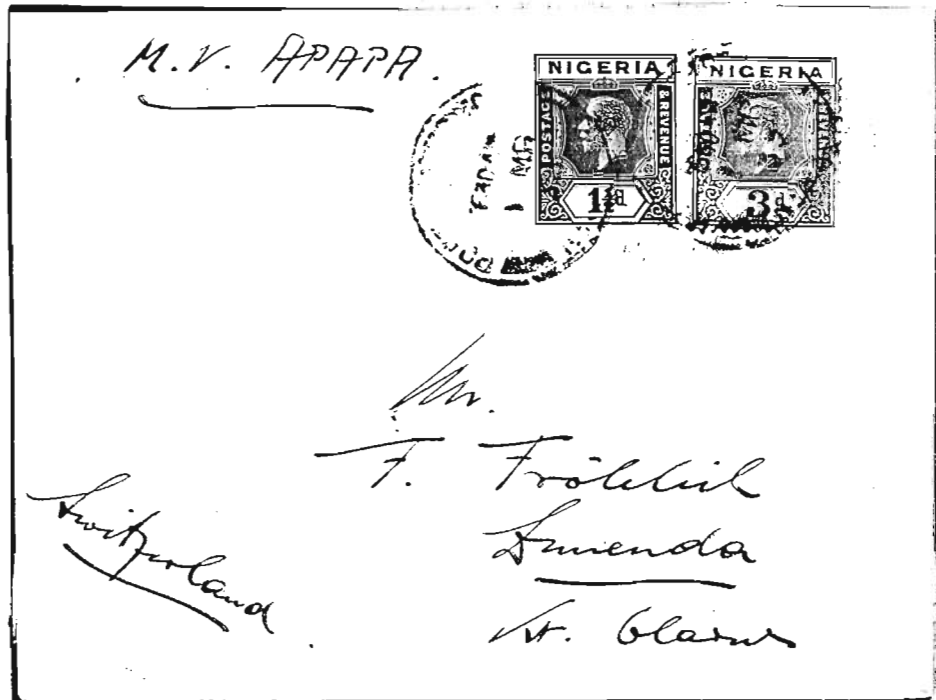 M.V. APAPA.
NIGERIA
POSTAGE & REVENUE
1½d
NIGERIA
3d
Mr.
F. Fröhlich
Ennenda
Kt. Glarus
Switzerland